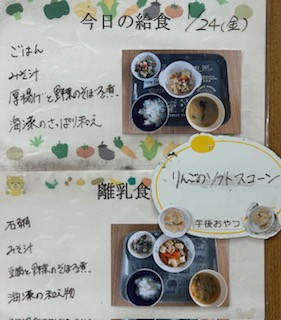 今日の給食 1/24(金)
ごはん
みそ汁
厚揚げと野菜のそぼろ煮
海藻のさっぱり和え
りんごのソフトスコーン
午後おやつ
離乳食
みそ汁
豆腐と野菜のそぼろ煮
海藻の和え物